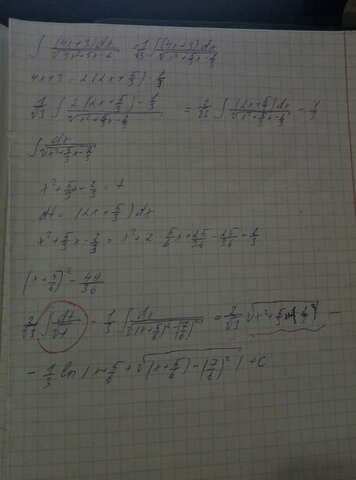 ∫ (4x+3)dx / √(3x²+5x-2) = 1/√3 ∫ (4x+3)dx / √(x²+5/3x-2/3)
4x+3 = 2(2x+5/3) - 1/3
1/√3 ∫ 2(2x+5/3) - 1/3 / √(x²+5/3x-2/3) = 2/√3 ∫ (2x+5/3)dx / √(x²+5/3x-2/3) - 1/3
∫ dx / √(x²+5/3x-2/3)
x²+5/3x-2/3 = t
dt = (2x+5/3)dx
x²+5/3x-2/3 = x²+2·5/6x+25/36-25/36-2/3
(x+5/6)² - 49/36
2/√3 ∫ dt/√t - 1/3 ∫ dx / √((x+5/6)²-(7/6)²) = 2/√3 √(x²+5/3x -
- 1/3 ln|x+5/6+√((x+5/6)-(7/6)²)|+C